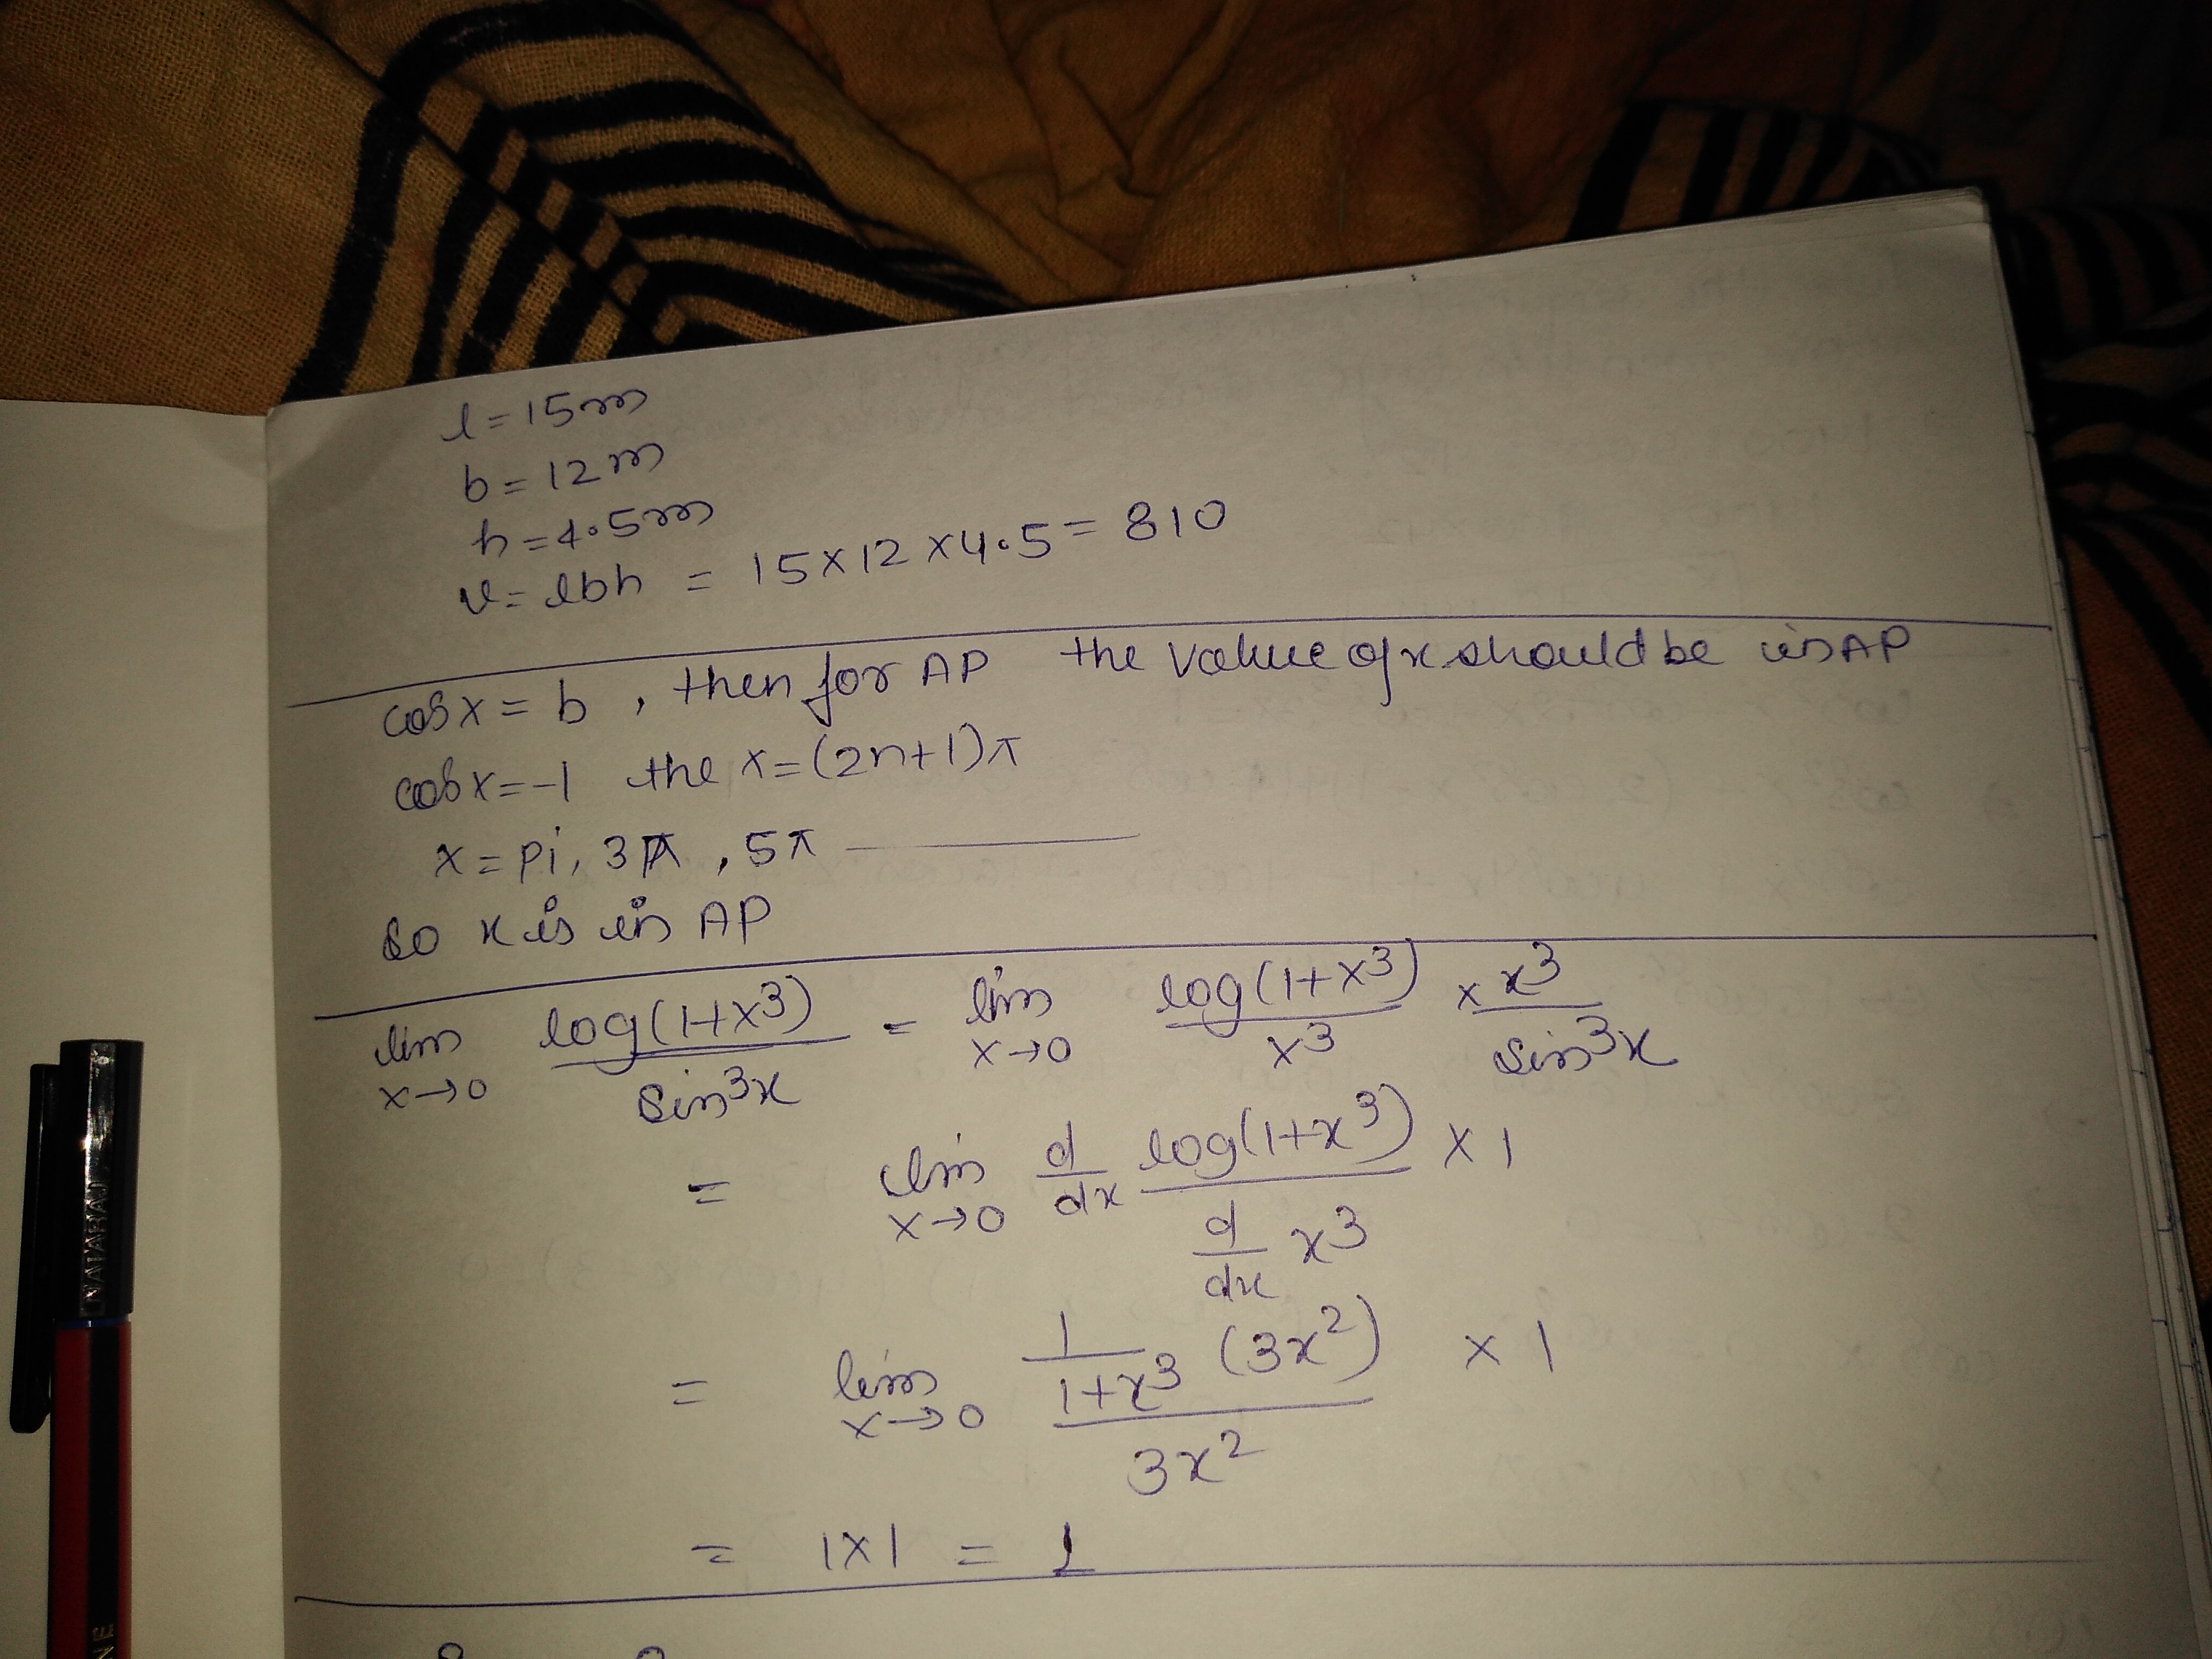 l = 15m
b = 12m
h = 4.5m
v = lbh = 15 × 12 × 4.5 = 810
cos x = b , then for AP the value of x should be in AP
cos x = -1 the x = (2n+1)π
x = pi, 3π , 5π
So x is in AP
lim x→0 log(1+x³) / sin³x = lim x→0 log(1+x³) / x³ × x³ / sin³x
= lim x→0 d/dx log(1+x³) / d/dx x³ × 1
= lim x→0 1/(1+x³) (3x²) / 3x² × 1
= 1×1 = 1
NATARAJ